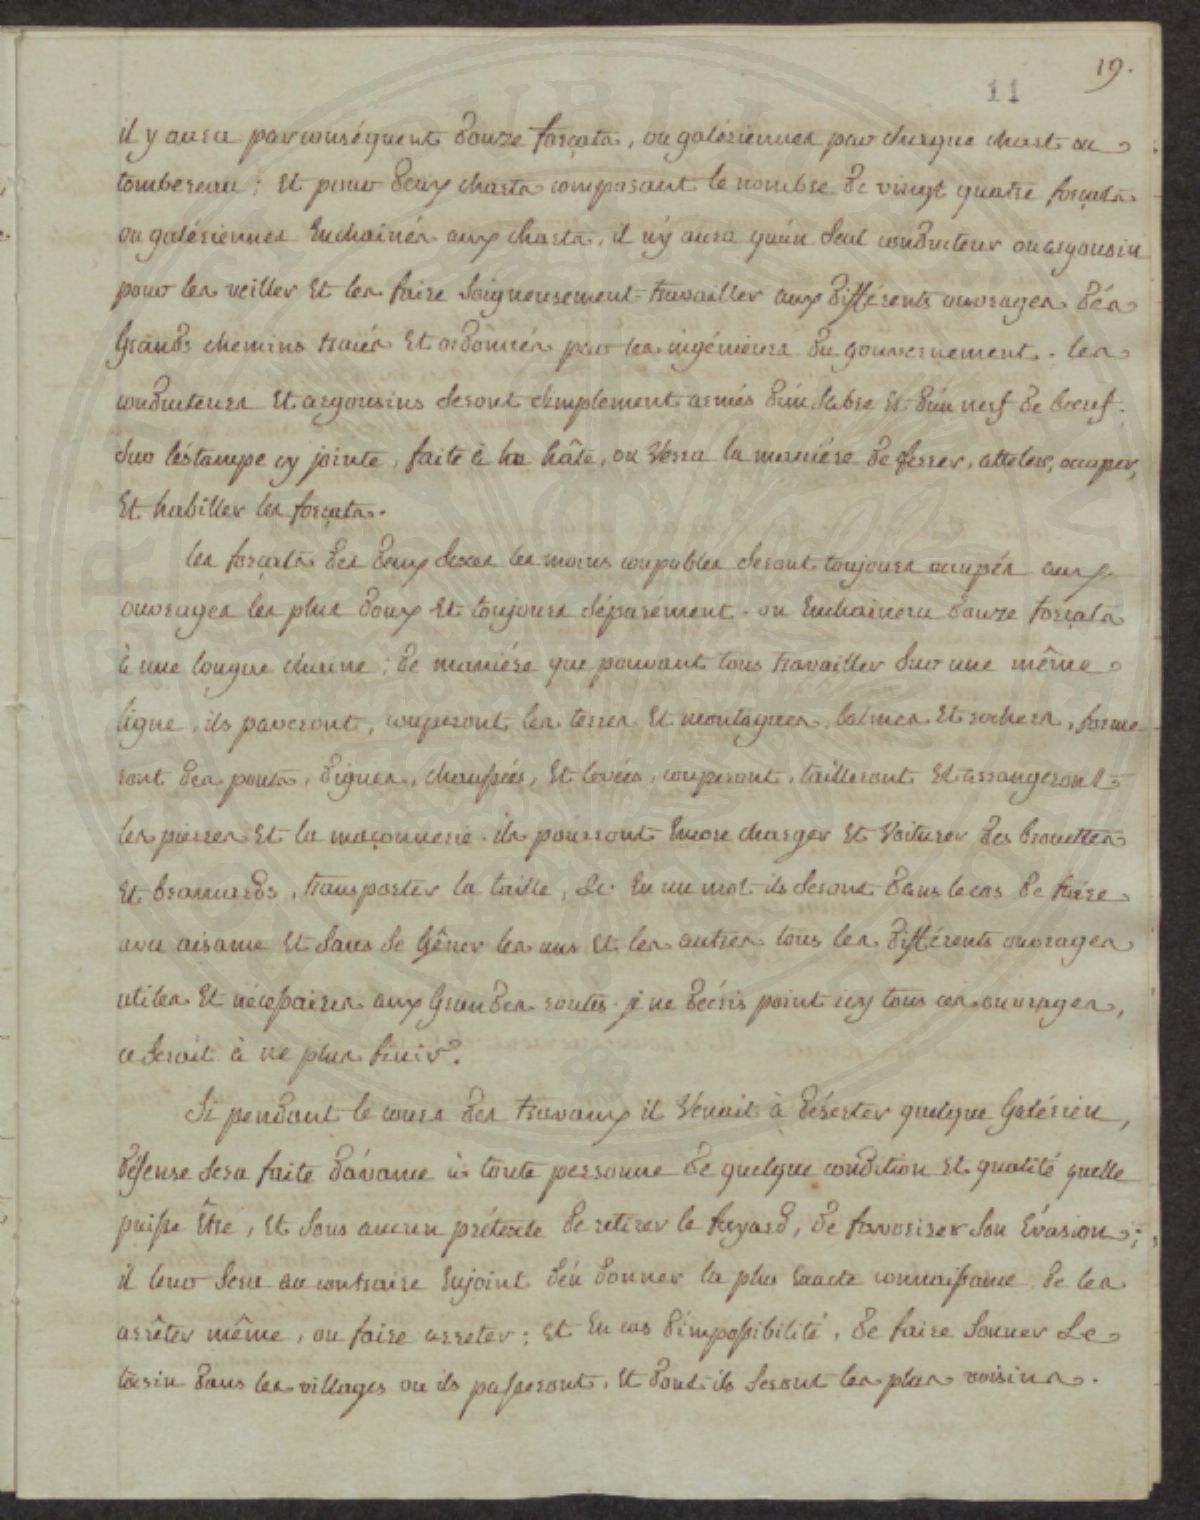 19.
11
il y aura par conséquent douze forçats, ou galériennes par chaque chart ou
tombereau; et pour deux charts composant le nombre de vingt quatre forçats
ou galériennes enchaînés aux charts, il n'y aura qu'un seul conducteur ou argousin
pour les veiller et les faire soigneusement travailler aux différents ouvrages dés
Grands chemins tracés et ordonnés par les ingénieurs du gouvernement. les
conducteurs et argousins seront simplement armés d'un sabre et d'un nerf de boeuf.
sur l'éstampe cy jointe, faite à la hâte, on verra la maniére de ferrer, atteler, occuper,
et habiller les forçats.
les forçats des deux sexes les moins coupables seront toujours occupés aux
ouvrages les plus doux et toujours séparément. on enchainera douze forçats
à une longue chaine; de maniére que pouvant tous travailler sur une même
ligne, ils paveront, couperont les terres et montagnes, balmes et rochers, forme
ront des ponts, digues, chaussées, et levées, couperont, tailleront et arrangeront
les pierres et la maçonnerie. ils pourront encore charger et voiturer des brouettes
et brancards, transporter la taille, &c. en un mot ils seront dans le cas de faire
avec aisance et sans se gêner les uns et les autres tous les différents ouvrages
utiles et nécessaires aux grandes routes. je ne décris point icy tous ces ouvrages,
ce seroit à ne plus finir.
Si pendant le cours des travaux il venait à déserter quelque Galérien,
défense sera faite d'avance à toute personne de quelque condition et qualité quelle
puisse être, et sous aucun prétexte de retirer le fuyard, de favoriser son évasion;
il leur sera au contraire enjoint d'en donner la plus exacte connaissance de les
arrêter même, ou faire arreter; et en cas d'impossibilité, de faire sonner le
tocsin dans les villages ou ils passeront, et dont ils seront les plus voisins.